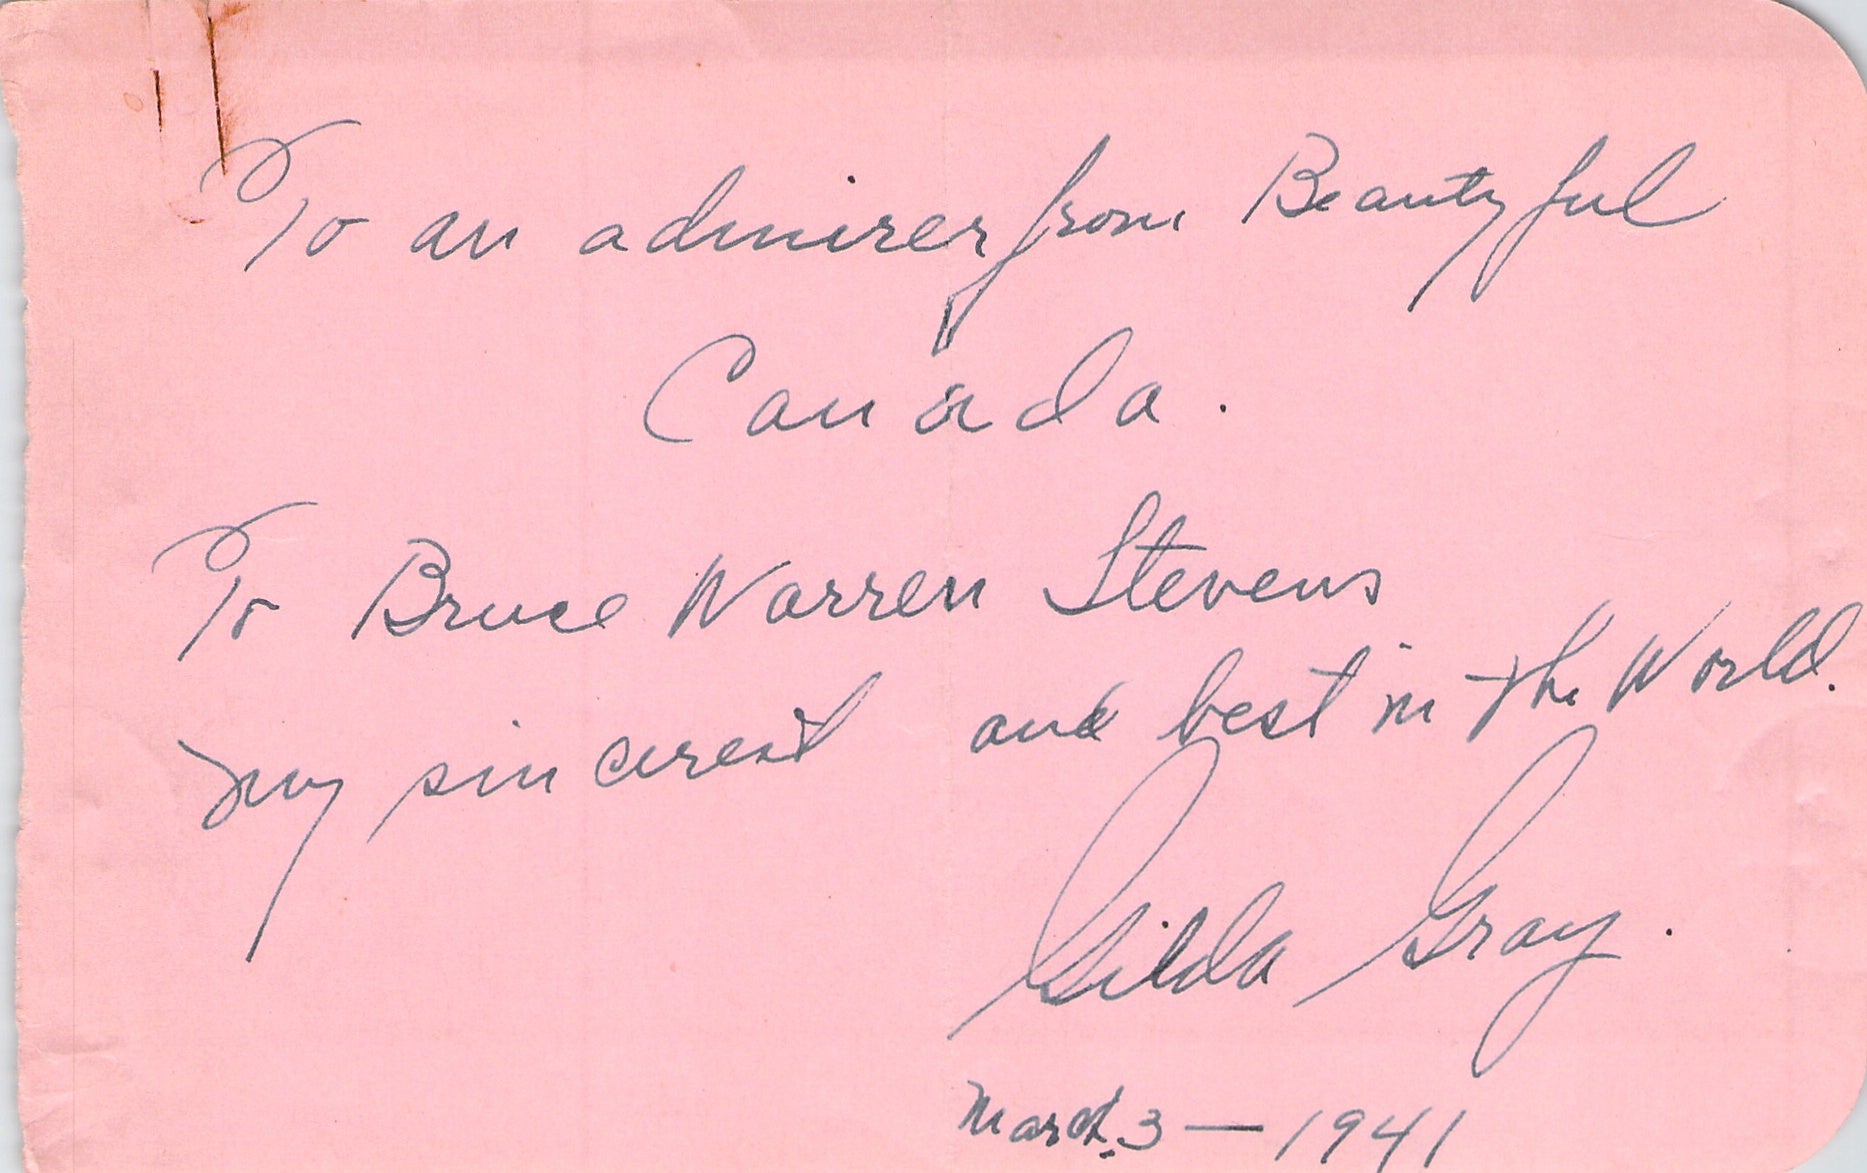 To an admirer from Beautyful
Canada.
To Bruce Warren Stevens
my sincerest and best in the World.
Gilda Gray.
March 3 — 1941